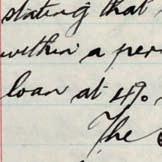 stating that
within a per
loan at 4%.
The